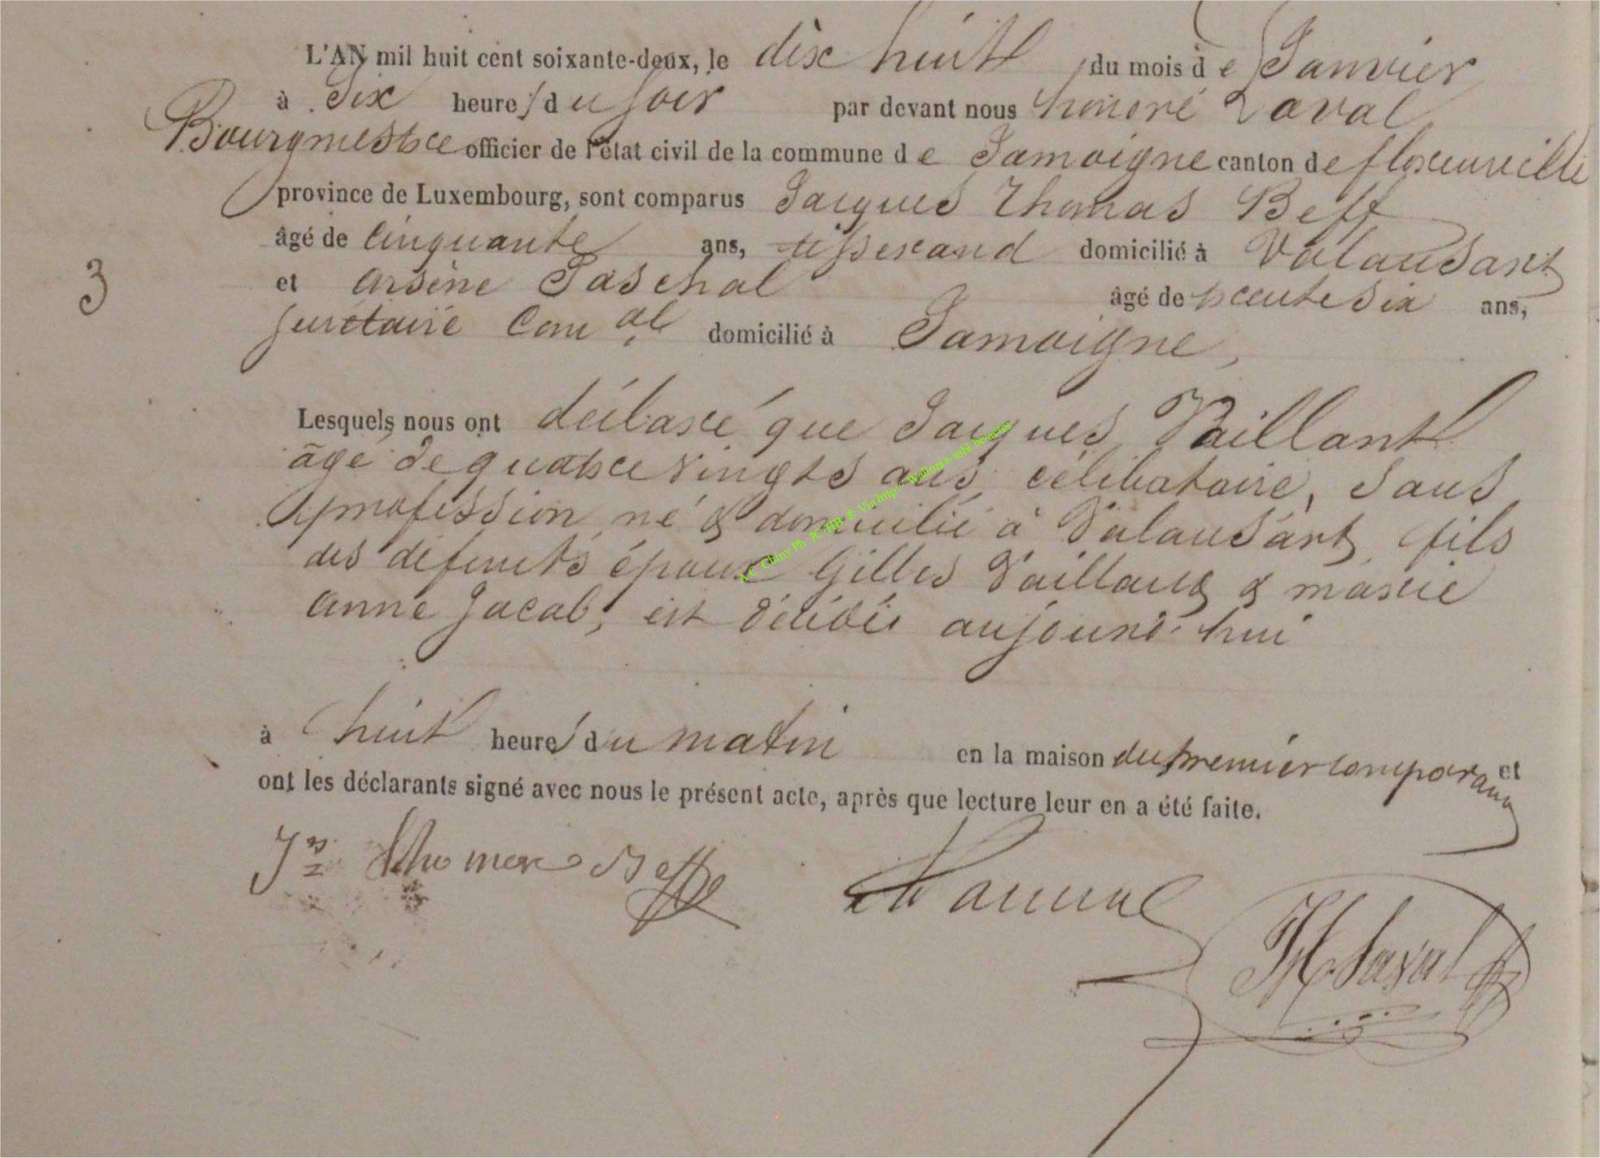 L'AN mil huit cent soixante-deux, le dix huit du mois de Janvier
à Six heures du soir par devant nous honoré Laval
Bourgmestre officier de l'état civil de la commune de Jamoigne canton de florenville
province de Luxembourg, sont comparus Jacques Thomas Beff
âgé de cinquante ans, tisserand domicilié à Valansart
et arsène Paschal âgé de trente six ans,
3
secrétaire Com al domicilié à Jamoigne,
Lesquels nous ont déclaré que Jacques Vaillant
âgé de quatre vingts ans célibataire, sans
profession né & domicilié à Valansart, fils
des défunts époux Gilles Vaillant & marie
anne Jacob, est décédé aujourd'hui
à huit heures du matin en la maison du premier comparant et
ont les déclarants signé avec nous le présent acte, après que lecture leur en a été faite.
Jn Thomas Beffe
H Laval